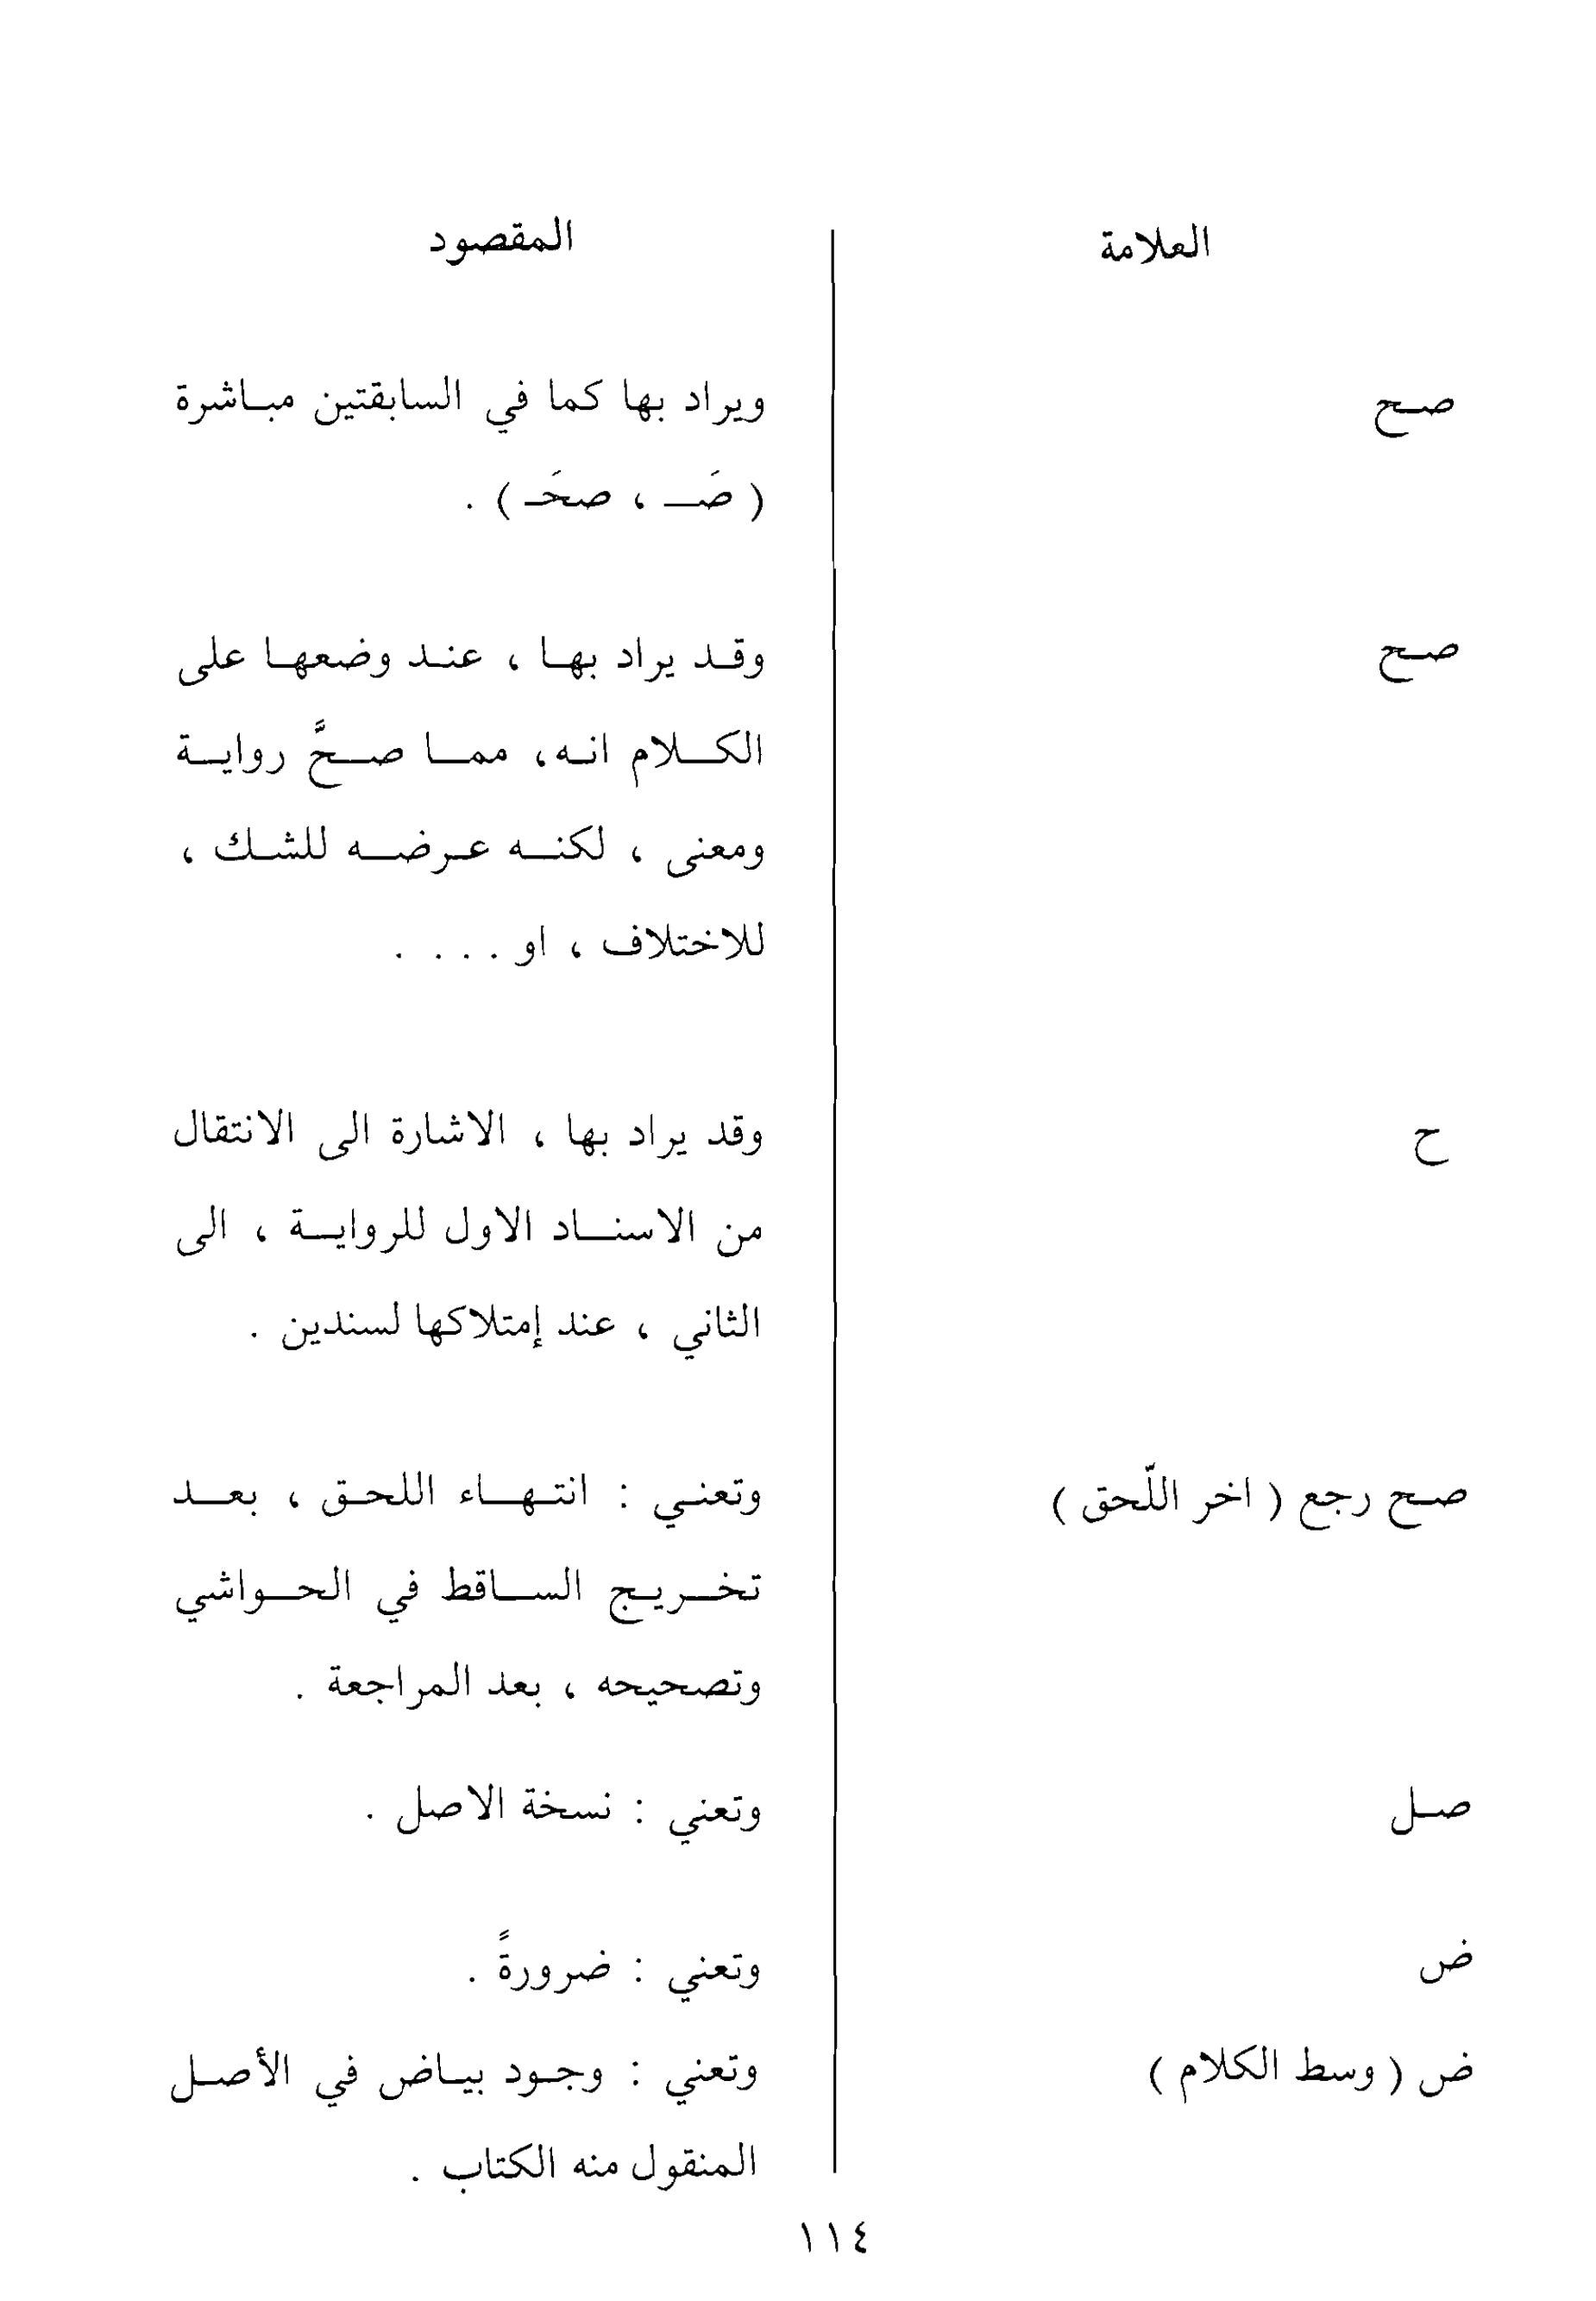 العلامة المقصود
صح ويراد بها كما في السابقتين مباشرة
( صَـ ، صحَـ ) .
صح وقد يراد بها ، عند وضعها على
الكلام انه، مما صحَّ رواية
ومعنى ، لكنه عرضه للشك ،
للاختلاف ، او . . . .
ح وقد يراد بها ، الاشارة الى الانتقال
من الاسناد الاول للرواية ، الى
الثاني ، عند إمتلاكها لسندين .
صح رجع ( اخر اللّحق ) وتعني : انتهاء اللحق ، بعد
تخريج الساقط في الحواشي
وتصحيحه ، بعد المراجعة .
صل وتعني : نسخة الاصل .
ض وتعني : ضرورةً .
ض ( وسط الكلام ) وتعني : وجود بياض في الأصل
المنقول منه الكتاب .
١١٤